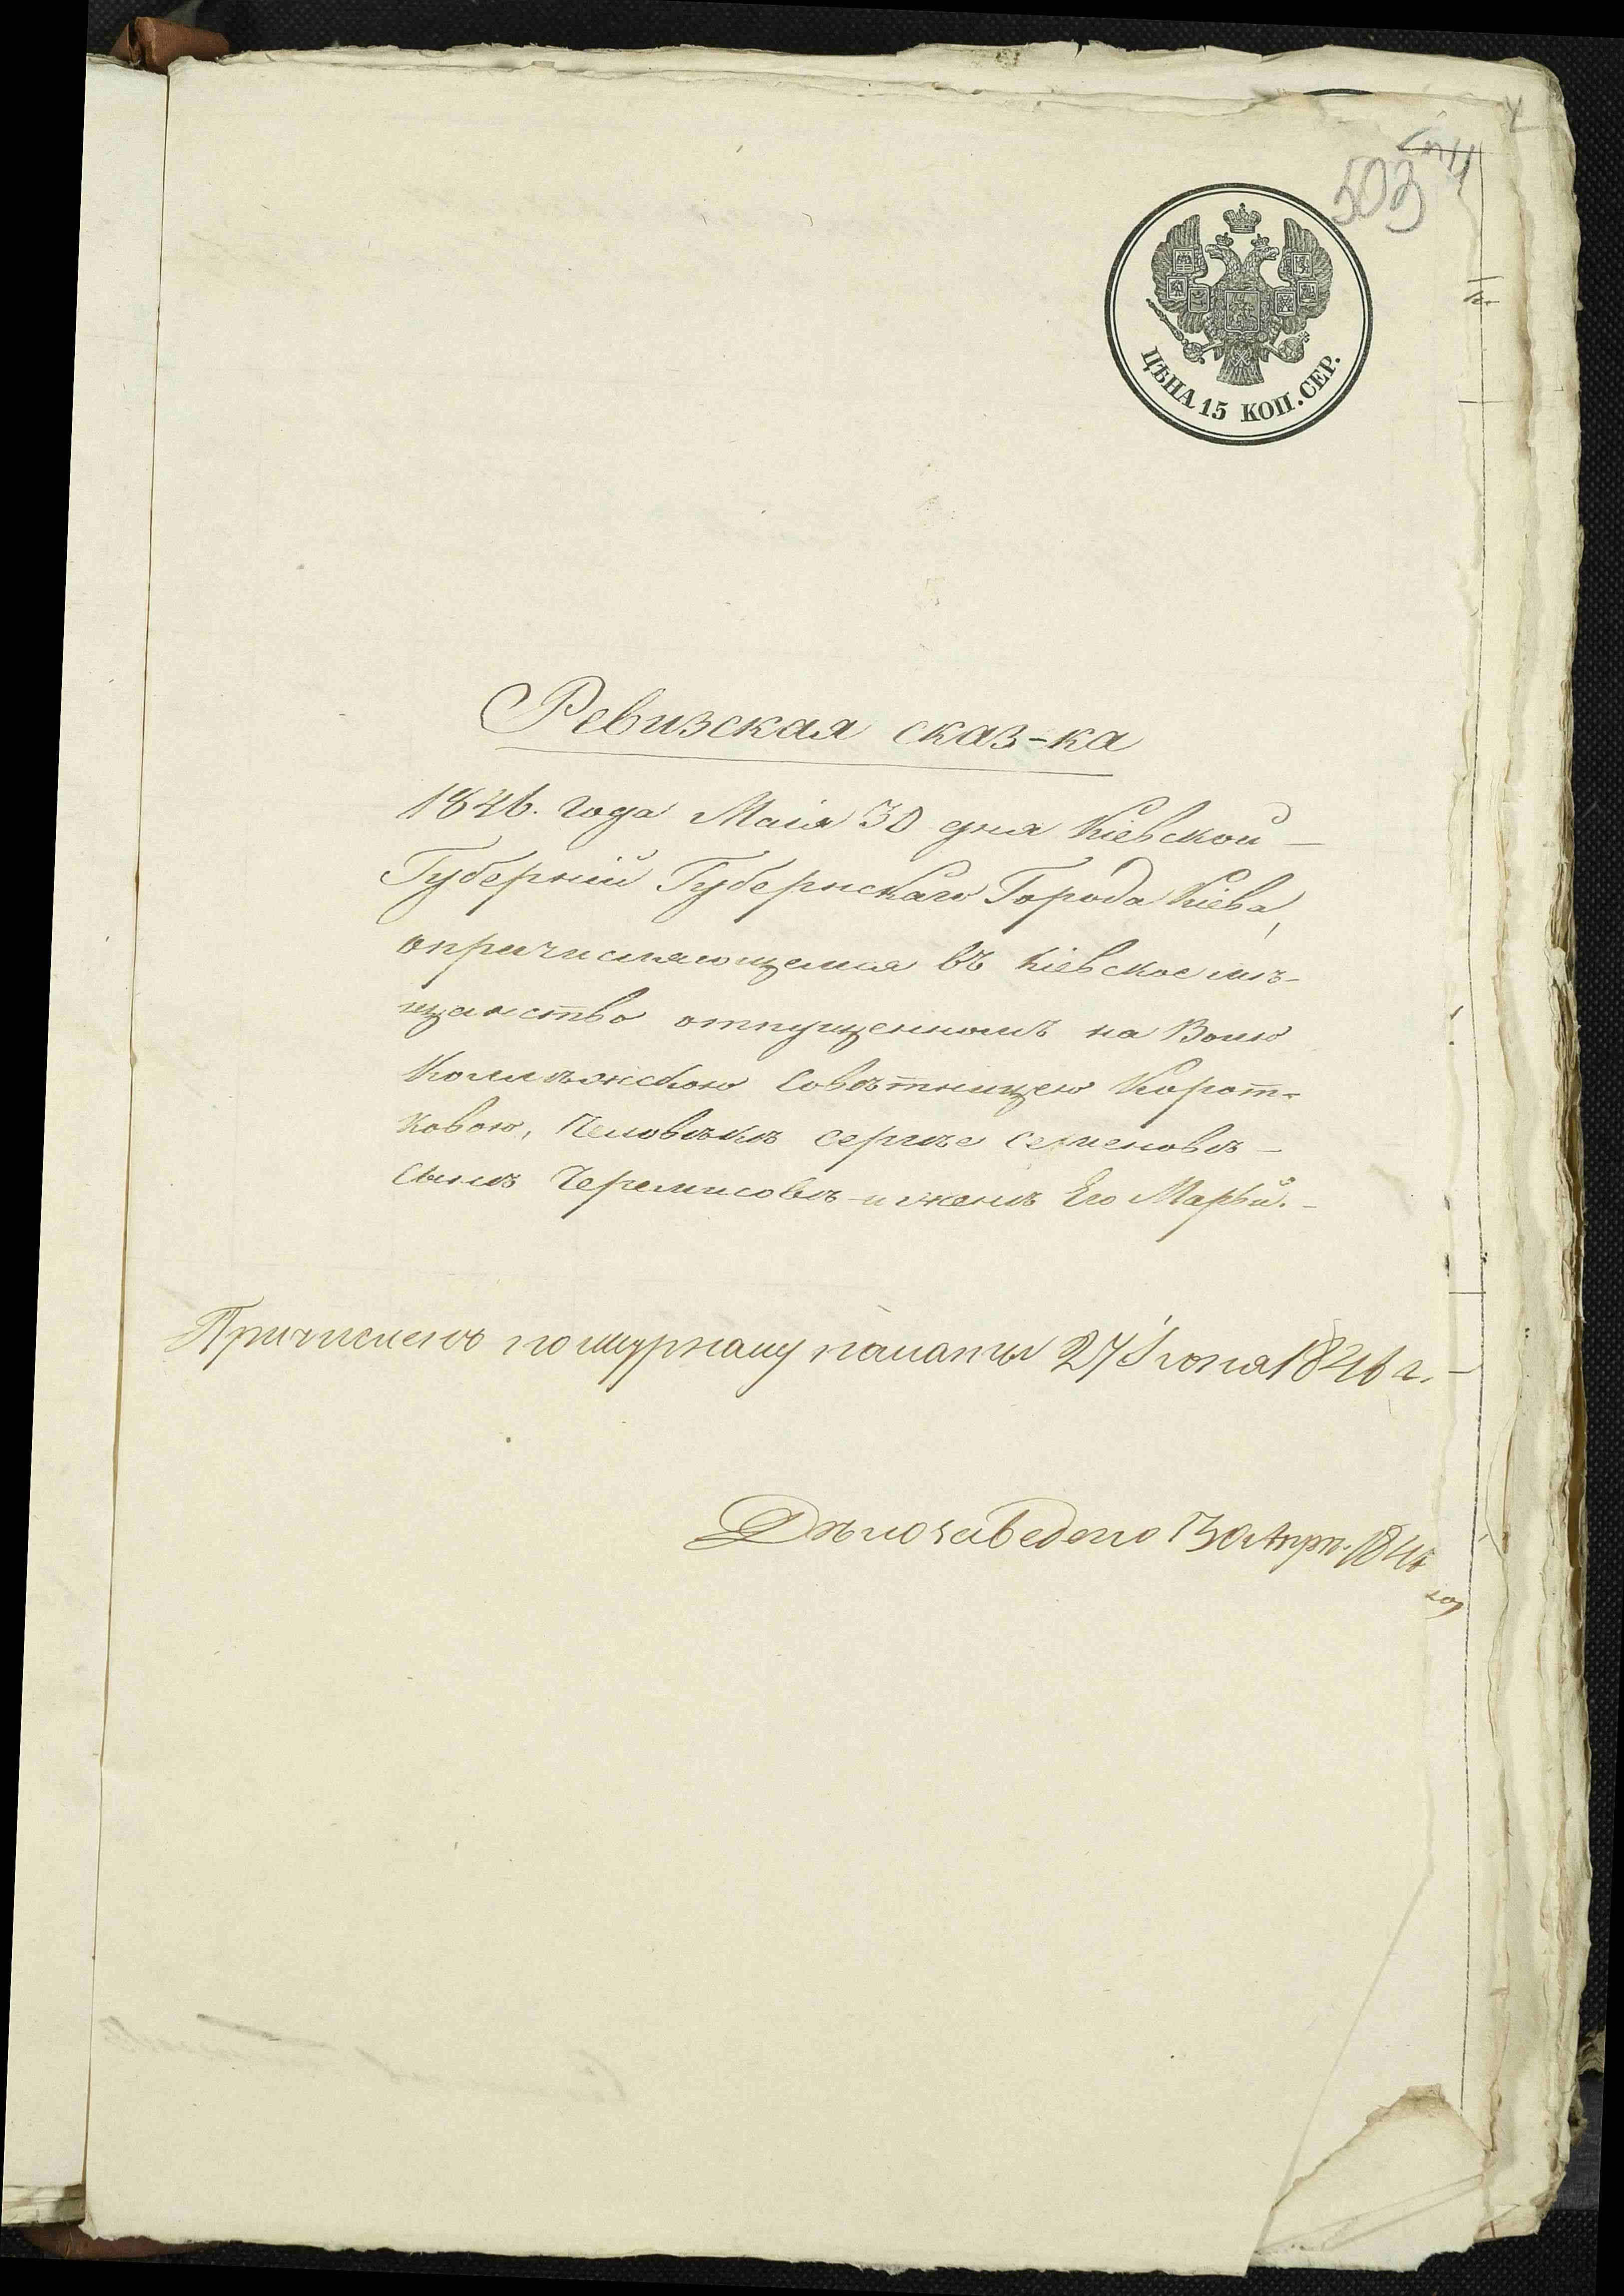 503
ЦѢНА 15 КОП. СЕР.
Ревизская сказ-ка
1846. года Маія 30 дня Кіевской
Губерніи Губернскаго Города Кіева,
опричисляющемся въ Кіевское мѣ-
щанство отпущенномъ на Волю
Коллѣжскою Совѣтницею Корот-
ковою, Человѣкѣ Сергѣе Семеновѣ
Сынѣ Черемисовѣ и женѣ Его Марьи.
Причисленъ по журналу палаты 27 Іюня 1846 г.
Дѣло заведено 30 Апрл. 1846